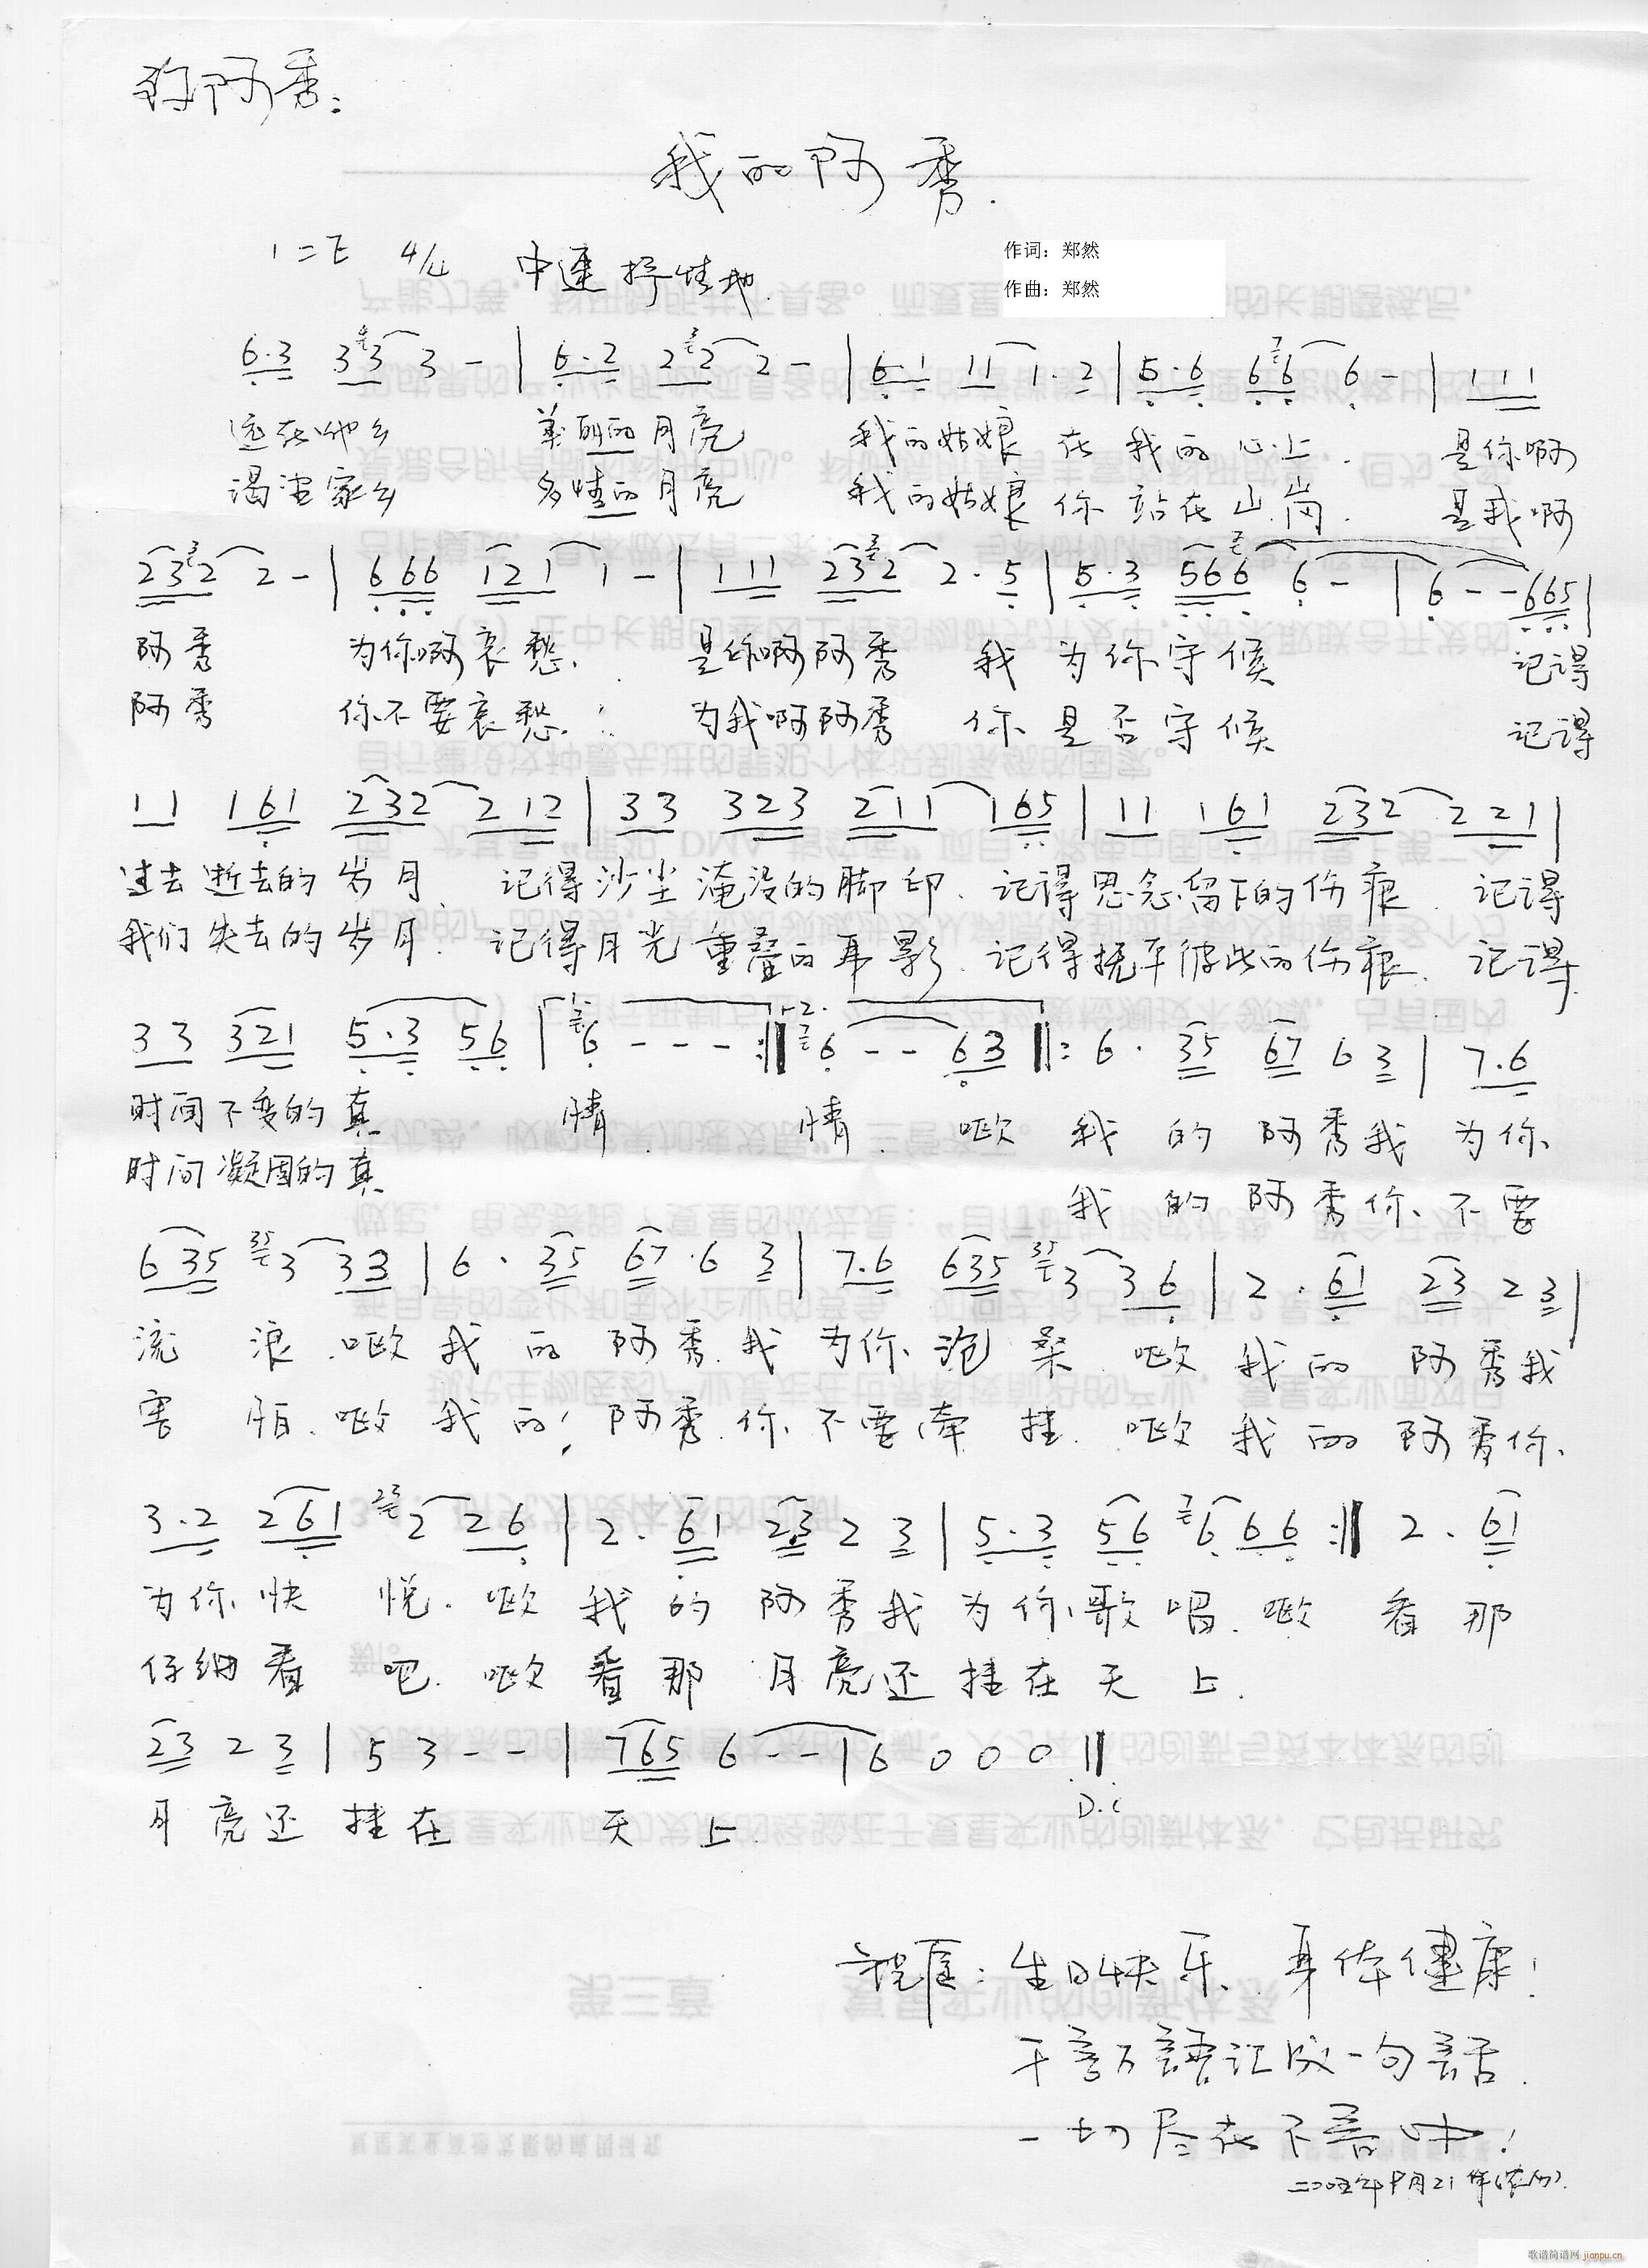 阿秀:
我的阿秀.
1=E 4/4 中速 抒情地.
作词：郑然
作曲：郑然
6.3 3 3 3 - | 6.2 2 2 2 - | 6.1 11 1.2 | 5.6 66 6 - | 111
远在他乡 美丽的月亮 我的姑娘 在我的心上. 是你啊
渴望家乡 多情的月亮 我的姑娘 你站在山岗. 是我啊
232 2 - | 666 121 1 - | 111 232 2.5 | 5.3 566 6 - | 6 - - 665 |
阿秀 为你啊哀愁. 是你啊阿秀 我为你守候 记得
阿秀 你不要哀愁. 为我啊阿秀 你是否守候 记得
11 161 232 212 | 33 323 211 165 | 11 161 232 221 |
过去逝去的岁月. 记得沙尘淹没的脚印. 记得思念留下的伤痕. 记得
我们失去的岁月. 记得月光重叠的耳影. 记得抚平彼此的伤痕. 记得
33 321 5.3 56 | 6 - - - :|| 6 - - 63 ||: 6. 35 67 6 3 | 7.6
时间不变的真 情. 情. 呕 我的阿秀我为你
时间凝固的真 我的阿秀你不要
635 3 33 | 6. 35 67.6 3 | 7.6 635 3 36 | 2. 61 23 2 3 |
流浪.呕我的阿秀.我为你沧桑.呕我的阿秀我
害怕.呕我的阿秀.你不要牵挂.呕我的阿秀你
3.2 261 2 26 | 2. 61 23 2 3 | 5.3 56 6 66 :|| 2. 61
为你快悦.呕我的阿秀我为你歌唱.呕看那
仔细看吧.呕看那月亮还挂在天上.
23 2 3 | 5 3 - - | 765 6 - - | 6 0 0 0 ||
D.C
月亮还挂在天上.
生日快乐、身体健康!
千言万語汇成一句話.
一切尽在不言中!
二00五年9月21
歌谱简谱网 jianpu.cn